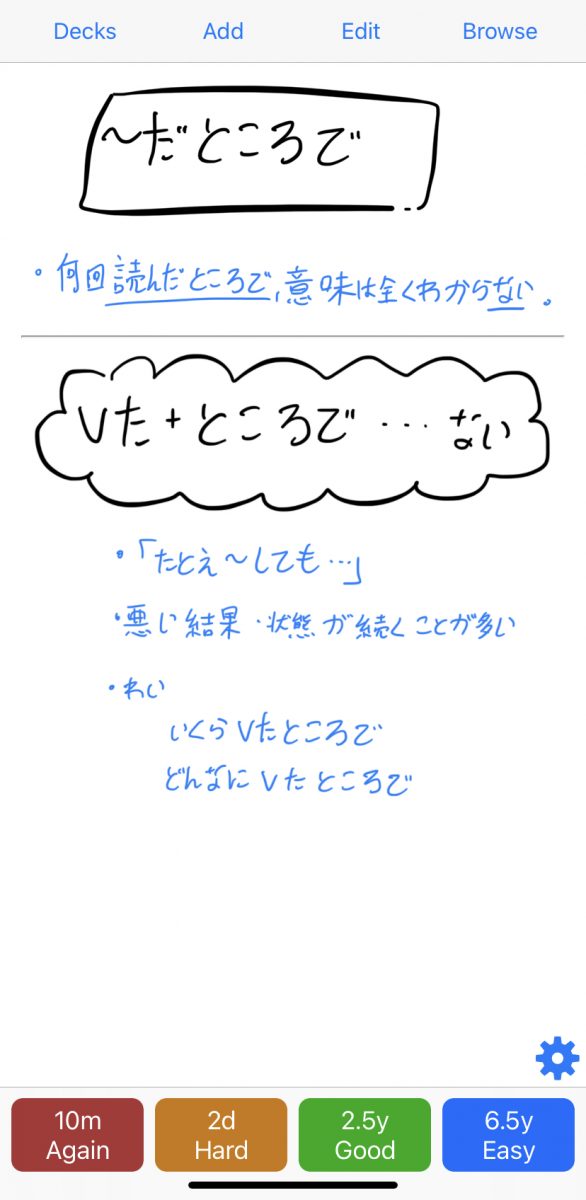 Decks Add Edit Browse
〜だところで
・何回読んだところで、意味は全くわからない。
Vた + ところで … ない
・「たとえ〜しても…」
・悪い結果・状態が続くことが多い
・れい
いくら Vたところで
どんなに Vたところで
10m 2d 2.5y 6.5y
Again Hard Good Easy